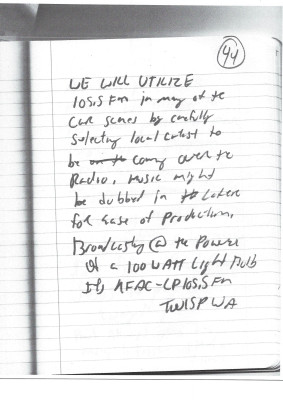 44
WE WILL UTILIZE
105.5 Fm in many of the
Car scenes by carefully
Selecting local artist to
be coming over the
Radio. Music might
be dubbed in Later
for ease of Production.
Broadcasting @ the Power
Of a 100 WATT Light Bulb
Its KFAC-LP 105.5 Fm
TWISP WA